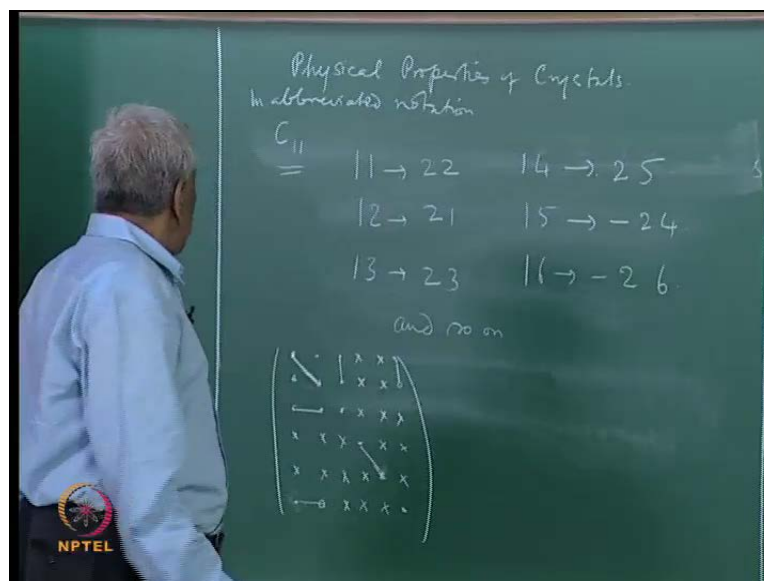 Physical Properties of Crystals.
In abbreviated notation
C₁₁
11 → 22 14 → 25
12 → 21 15 → -24
13 → 23 16 → -26.
and so on
x x
x x x
x x x
x x x x x
x x x x x x
x x x
NPTEL